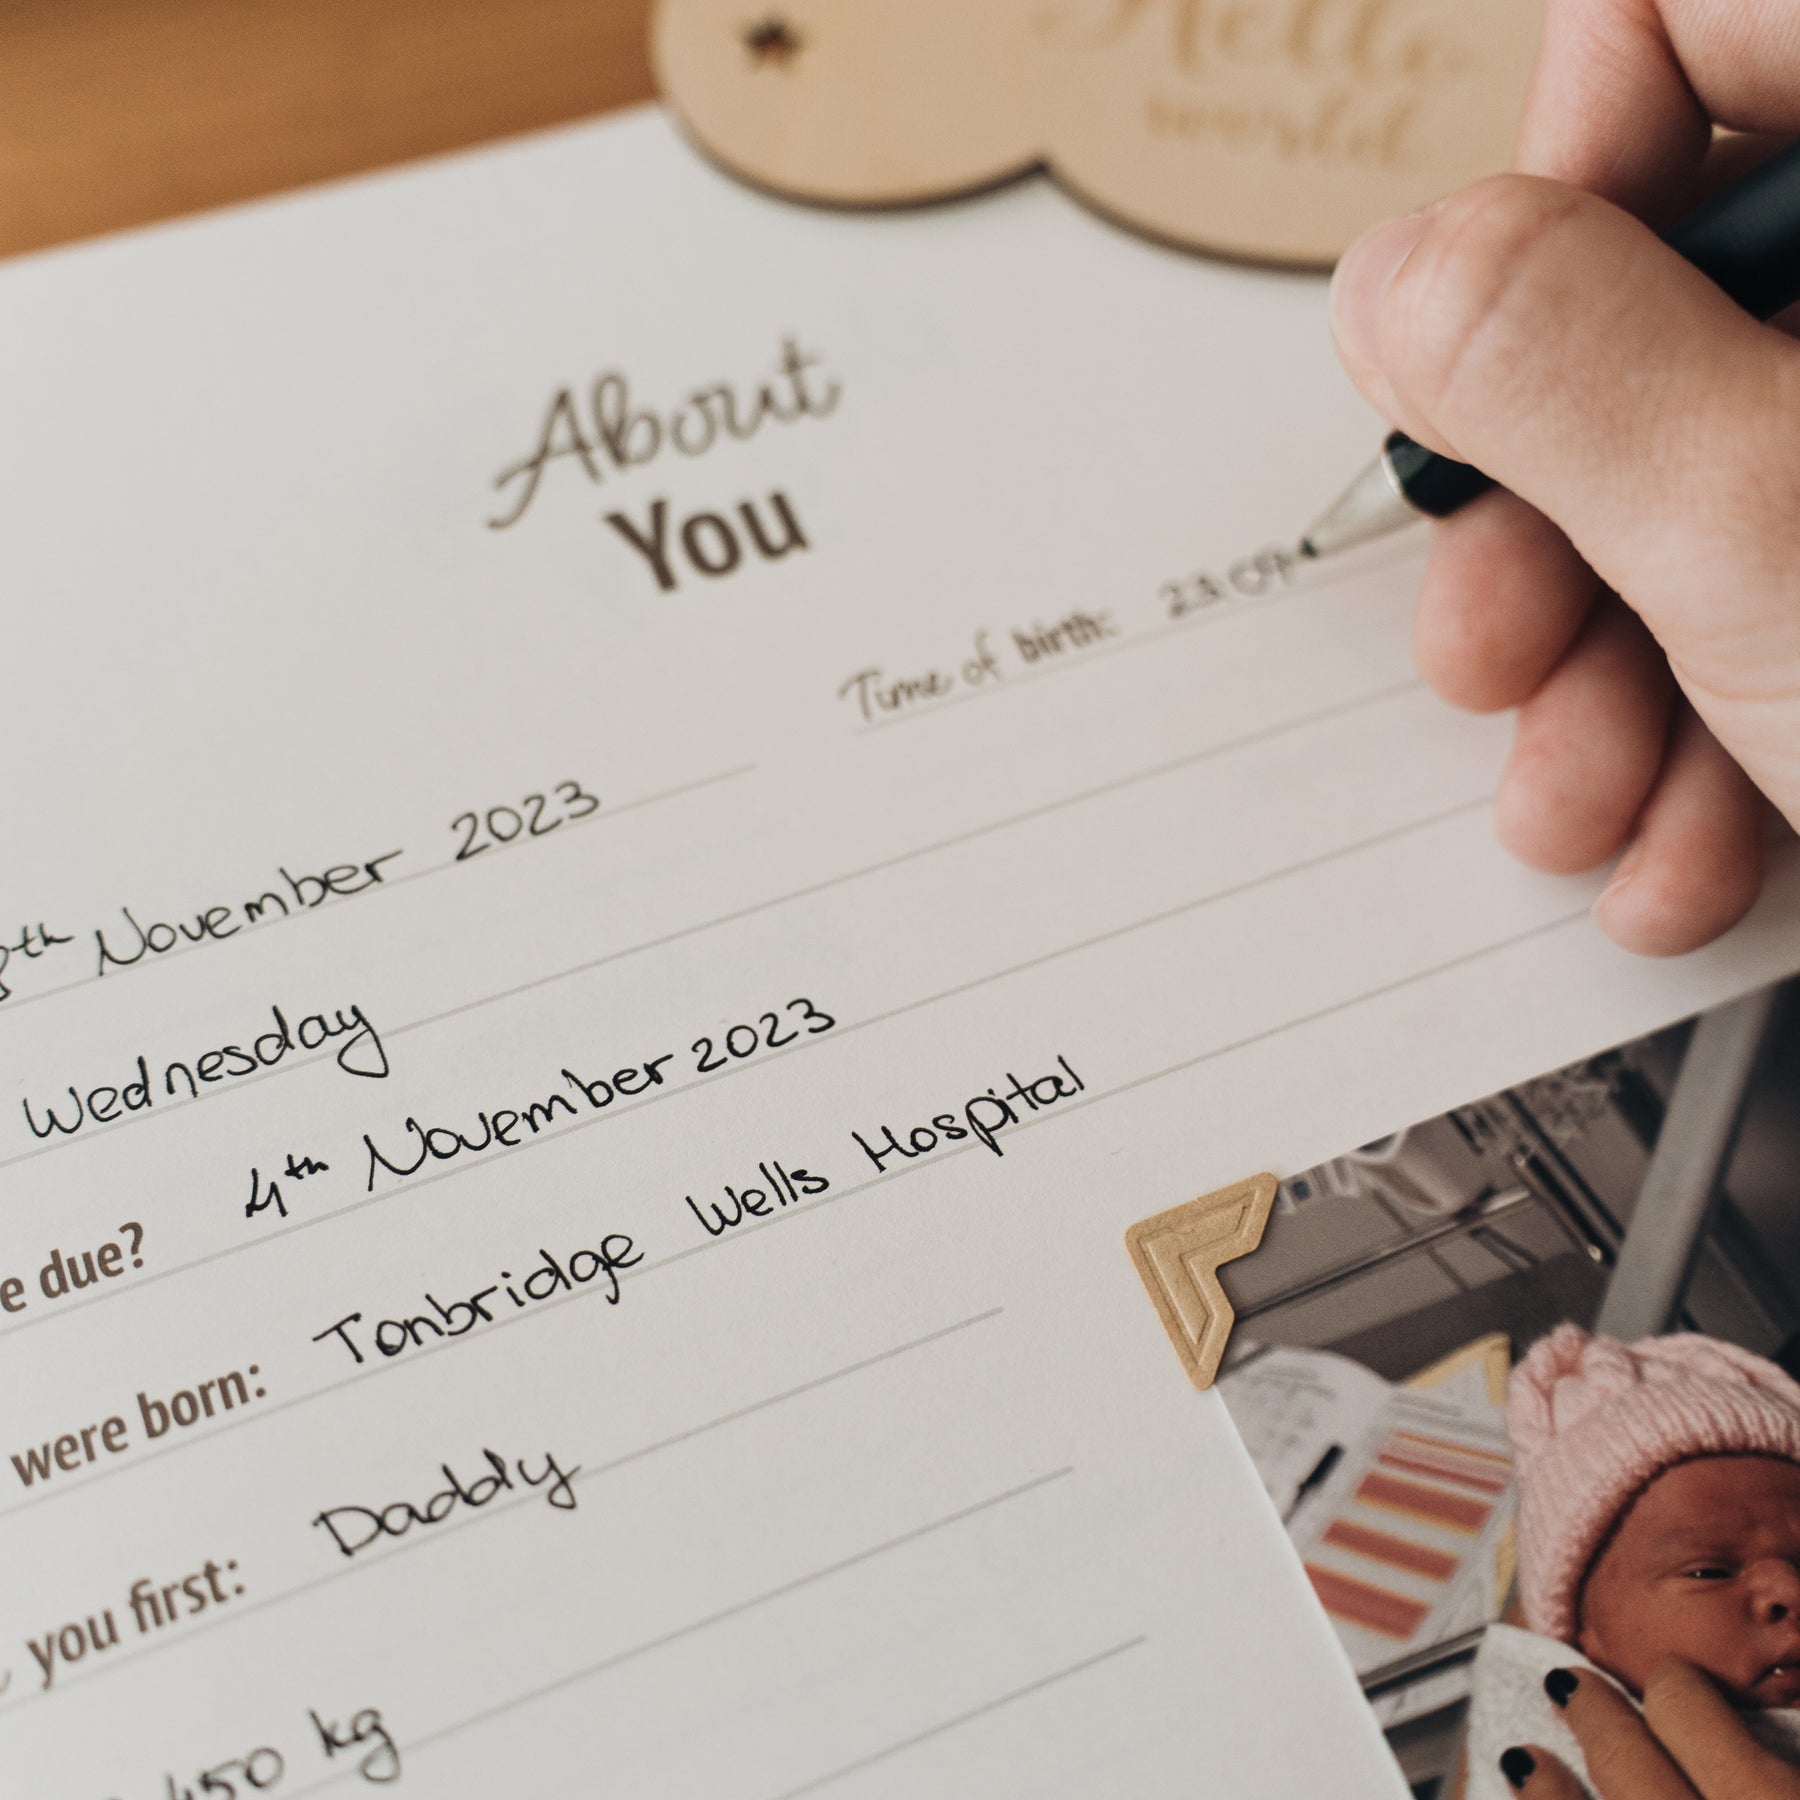 Hello
world
About
You
Time of birth:
8th November 2023
Wednesday
e due? 4th November 2023
were born: Tonbridge Wells Hospital
you first: Daddy
450 kg